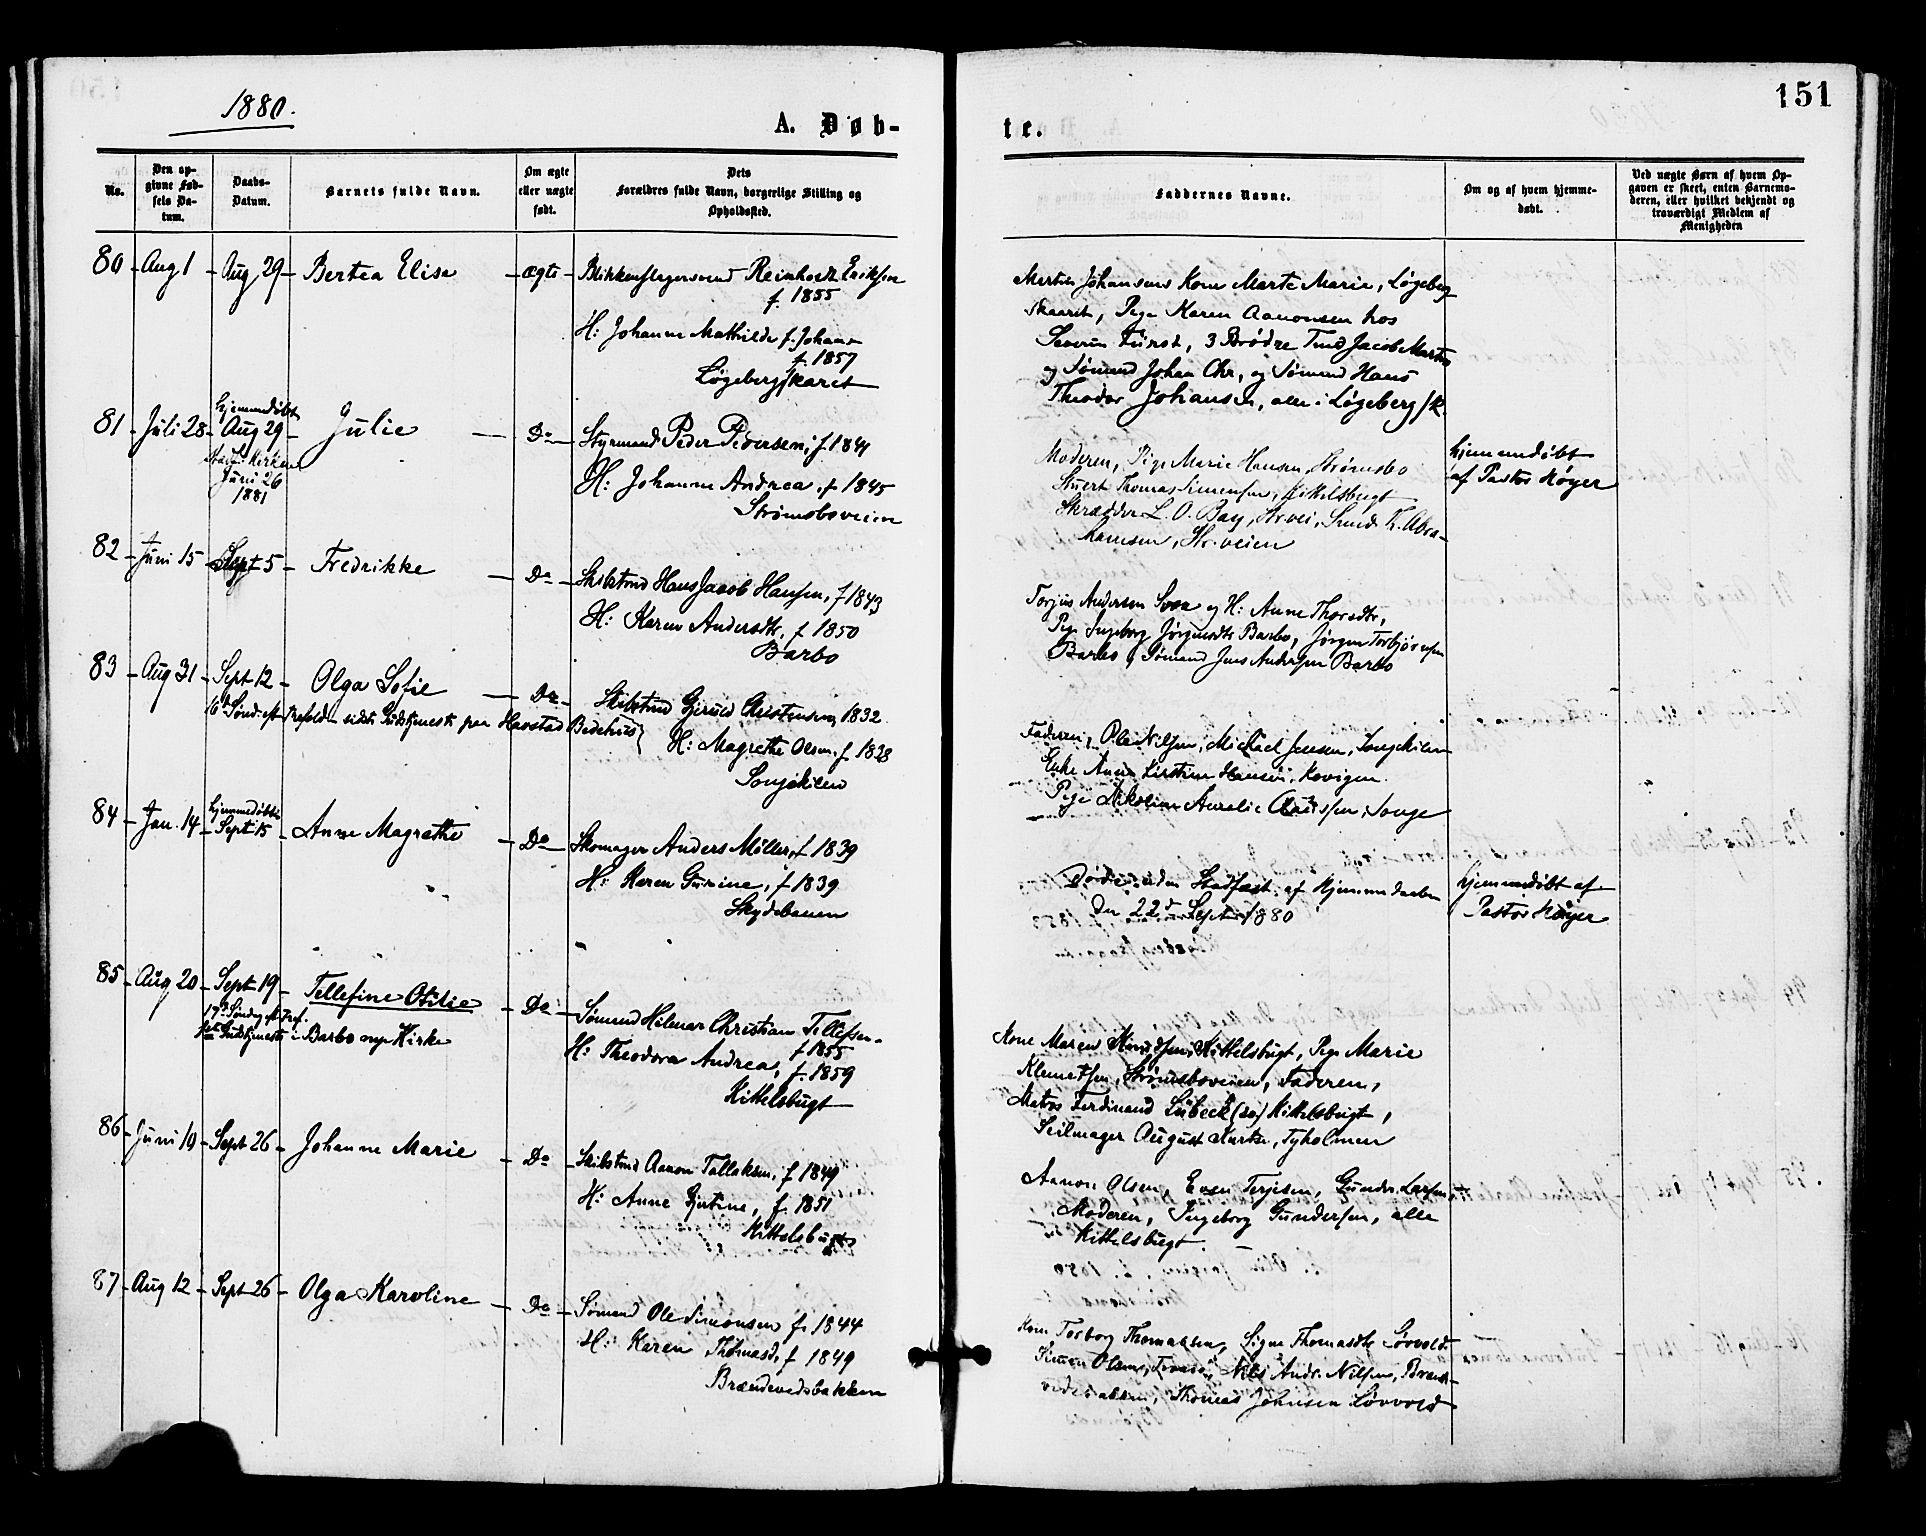 1880.
151
A. Døb-
te.
No.
Den op-
givne Fød-
sels Da-
tum.
Daabs-
Datum.
Barnets fulde Navn.
Om ægte
eller uægte
født.
Dets
Forældres fulde Navn, borgerlige Stilling og
Opholdssted.
Faddernes Navne.
Om og af hvem hjemme-
døbt.
Ved uægte Børn af hvem Op-
gaven er skeet, enten Barnemo-
deren, eller hvilket bekjendt og
troværdigt Medlem af
Menigheden
80 - Aug 1 - Aug 29 - Bertea Elise - ægte - Blikkenslagersvend Reinhodt Eriksen
f. 1855
H: Johanne Mathilde f. Johans
f. 1857
Løgebergskaret
Martin Johansens Kone Marte Marie, Løgeberg
skaaret, Pige Karen Aanonsen hos
Severin Fürst, 3 Brödre Tmd Jacob Martin
og Sømand Johan Chr, og Sømand Hans
Theodor Johansen, alle i Løgebergsk.
81 - Juli 28 - hjemmedøbt
Aug 29 - Julie - Do - Styrmand Peder Pedersen, f. 1844
Kirken
Juni 26
1881
H: Johanne Andrea, f 1845
Strømsboveien
Moderen, Pige Marie Hansen, Strømsbo
Stuert Thomas Simensen, Kittelsbugt
Skrædder L. O. Bay, Strvei, K. Abra-
hamsen, Str.veien
hjemmedöbt
af Pastor Køyer
82 - Juni 15 - Sept 5 - Fredrikke - Do - Skibstmd Hans Jacob Hansen, f 1843
H: Karen Andersdtr, f 1850
Barbo
Torjus Andersen Svea og H: Anne Thorsdtr,
Pige Ingeborg Jørgensdtr Barbo, Jørgen Torbjörnsen
Barbo, Sømand Jens Andersen Barbo
83 - Aug 31 - Sept 12 - Olga Sofie - Do - Skibstmd Gjeruld Christensen, 1832
16d Sønd. eft Trefold - sidste Gudstjeneste paa Havstad Bedehus
H: Magrethe Olsen, f 1838
Songekilen
Faderen, Ole Nilsen, Michael Jensen, Songekilen
Enke Anne Kirstine Hansen, Kovigen
Pige Nikoline Aurelie Claussen, Songe
84 - Jan. 14 - hjemmedøbt
Sept 15 - Anne Magrethe - Do - Skomager Anders Møller, f 1839
H: Karen Gurine, f 1839
Skydebanen
Døde uden Stadfæst. af Hjemmedaaben
Den 22d Sept 1880
hjemmedöbt af
Pastor Køyer
85 - Aug 20 - Sept 19 - Tellefine Otilie - Do - Sømand Hilmar Christian Tellefsen
f. 1855
17d Søndag eft Tref.
1ste Gudstjeneste i Barbo nye Kirke
H: Theodora Andrea, f. 1859
Kittelsbugt
Kone Maren Knudsen, Kittelsbugt, Pige Marie
Klemetsen, Strømsboveien, Faderen,
Matros Ferdinand Lübeck (do) Kittelsbugt,
Seilmager August Kurtze, Tyholmen
86 - Juni 10 - Sept 26 - Johanne Marie - Do - Skibstmd Aanon Tallaksen, f 1849
H: Anne Gjurine, f. 1851
Kittelsbugt
Aanon Olsen, Even Terjesen, Gunder Larsen
Moderen, Ingeborg Gundersen, alle
Kittelsbugt
87 - Aug 12 - Sept 26 - Olga Karoline - Do - Sømand Ole Simonsen f. 1844
H: Karen Thomasd, f 1849
Brændevedsbakken
Kone Torborg Thomassen, Signe Thomasdtr Løvvold
Simon Olsen, Tromø, Nils Andr. Nilsen, Brænde-
vedsbakken, Thomas Johnsen Løvvold